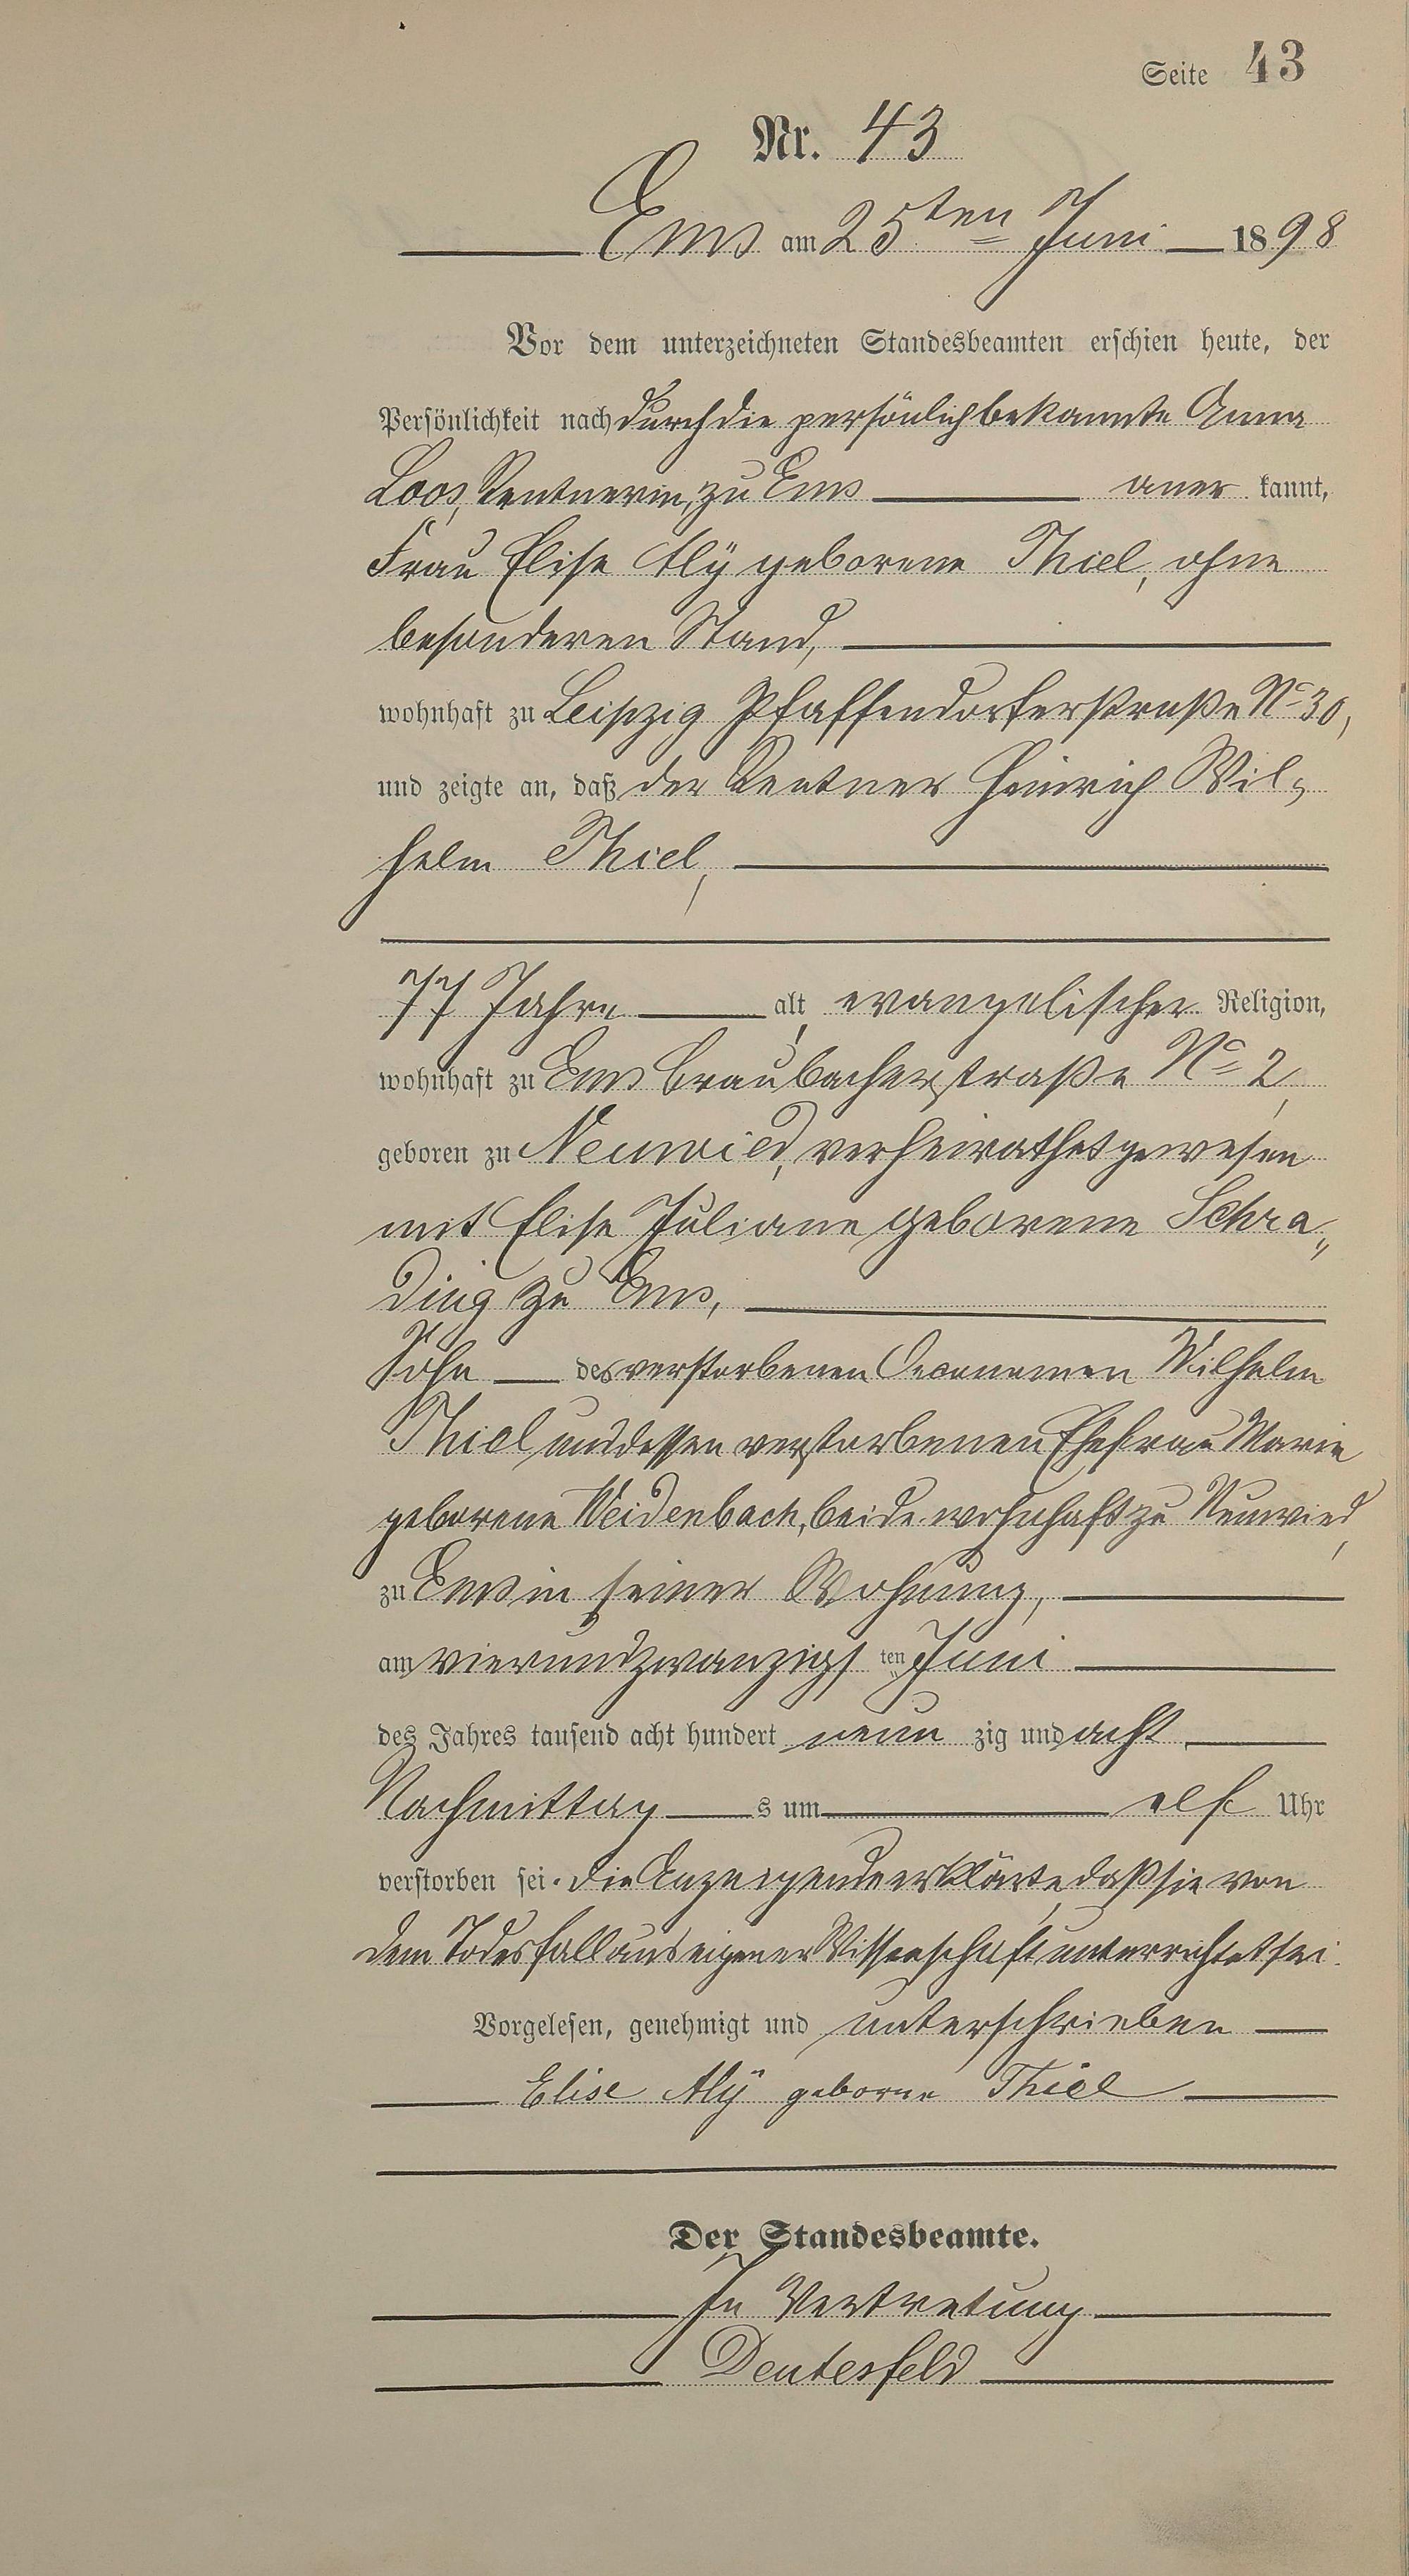 Seite 43
Nr. 43
Ems am 25ten Juni 1898
Vor dem unterzeichneten Standesbeamten erschien heute, der
Persönlichkeit nach durch die persönlich bekannte Anna
Loos, Rentnerin, zu Ems aner kannt,
Frau Elise Alÿ geborene Thiel, ohne
besonderen Stand,
wohnhaft zu Leipzig Pfaffendorferstraße No 30,
und zeigte an, daß der Rentner Heinrich Wil-
helm Thiel,
77 Jahre alt, evangelischer Religion,
wohnhaft zu Ems Braubacherstraße No 2,
geboren zu Neuwied, verheirathet gewesen
mit Elise Juliane geborene Schra„
ding zu Ems,
Sohn des verstorbenen Oeconomen Wilhelm
Thiel und dessen verstorbenen Ehefrau Marie
geborene Weidenbach, beide wohnhaft zu Neuwied,
zu Ems in seiner Wohnung,
am vierundzwanzigs ten Juni
des Jahres tausend acht hundert neun zig und acht,
Nachmittag s um elf Uhr
verstorben sei. Die Anzeigende erklärte, daß sie von
dem Todesfall aus eigener Wissenschaft unterrichtet sei.
Vorgelesen, genehmigt und unterschrieben
Elise Alÿ geborne Thiel
Der Standesbeamte.
In Vertretung
Deutesfeld